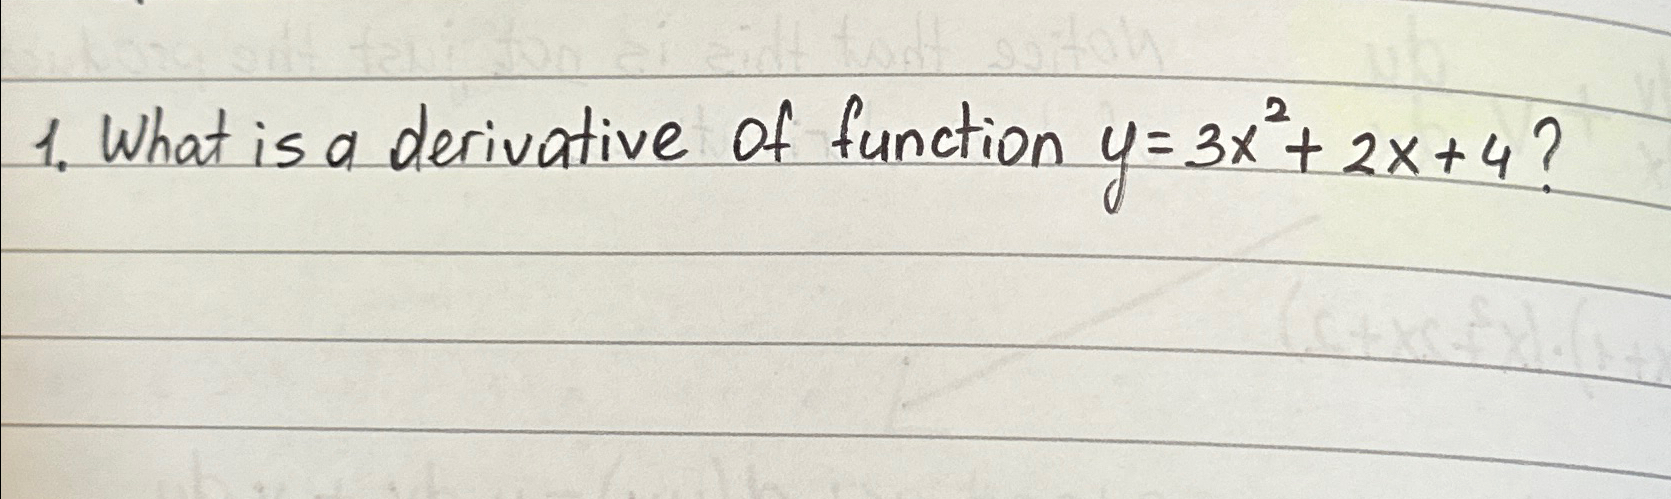 1. What is a derivative of function y = 3x² + 2x + 4?